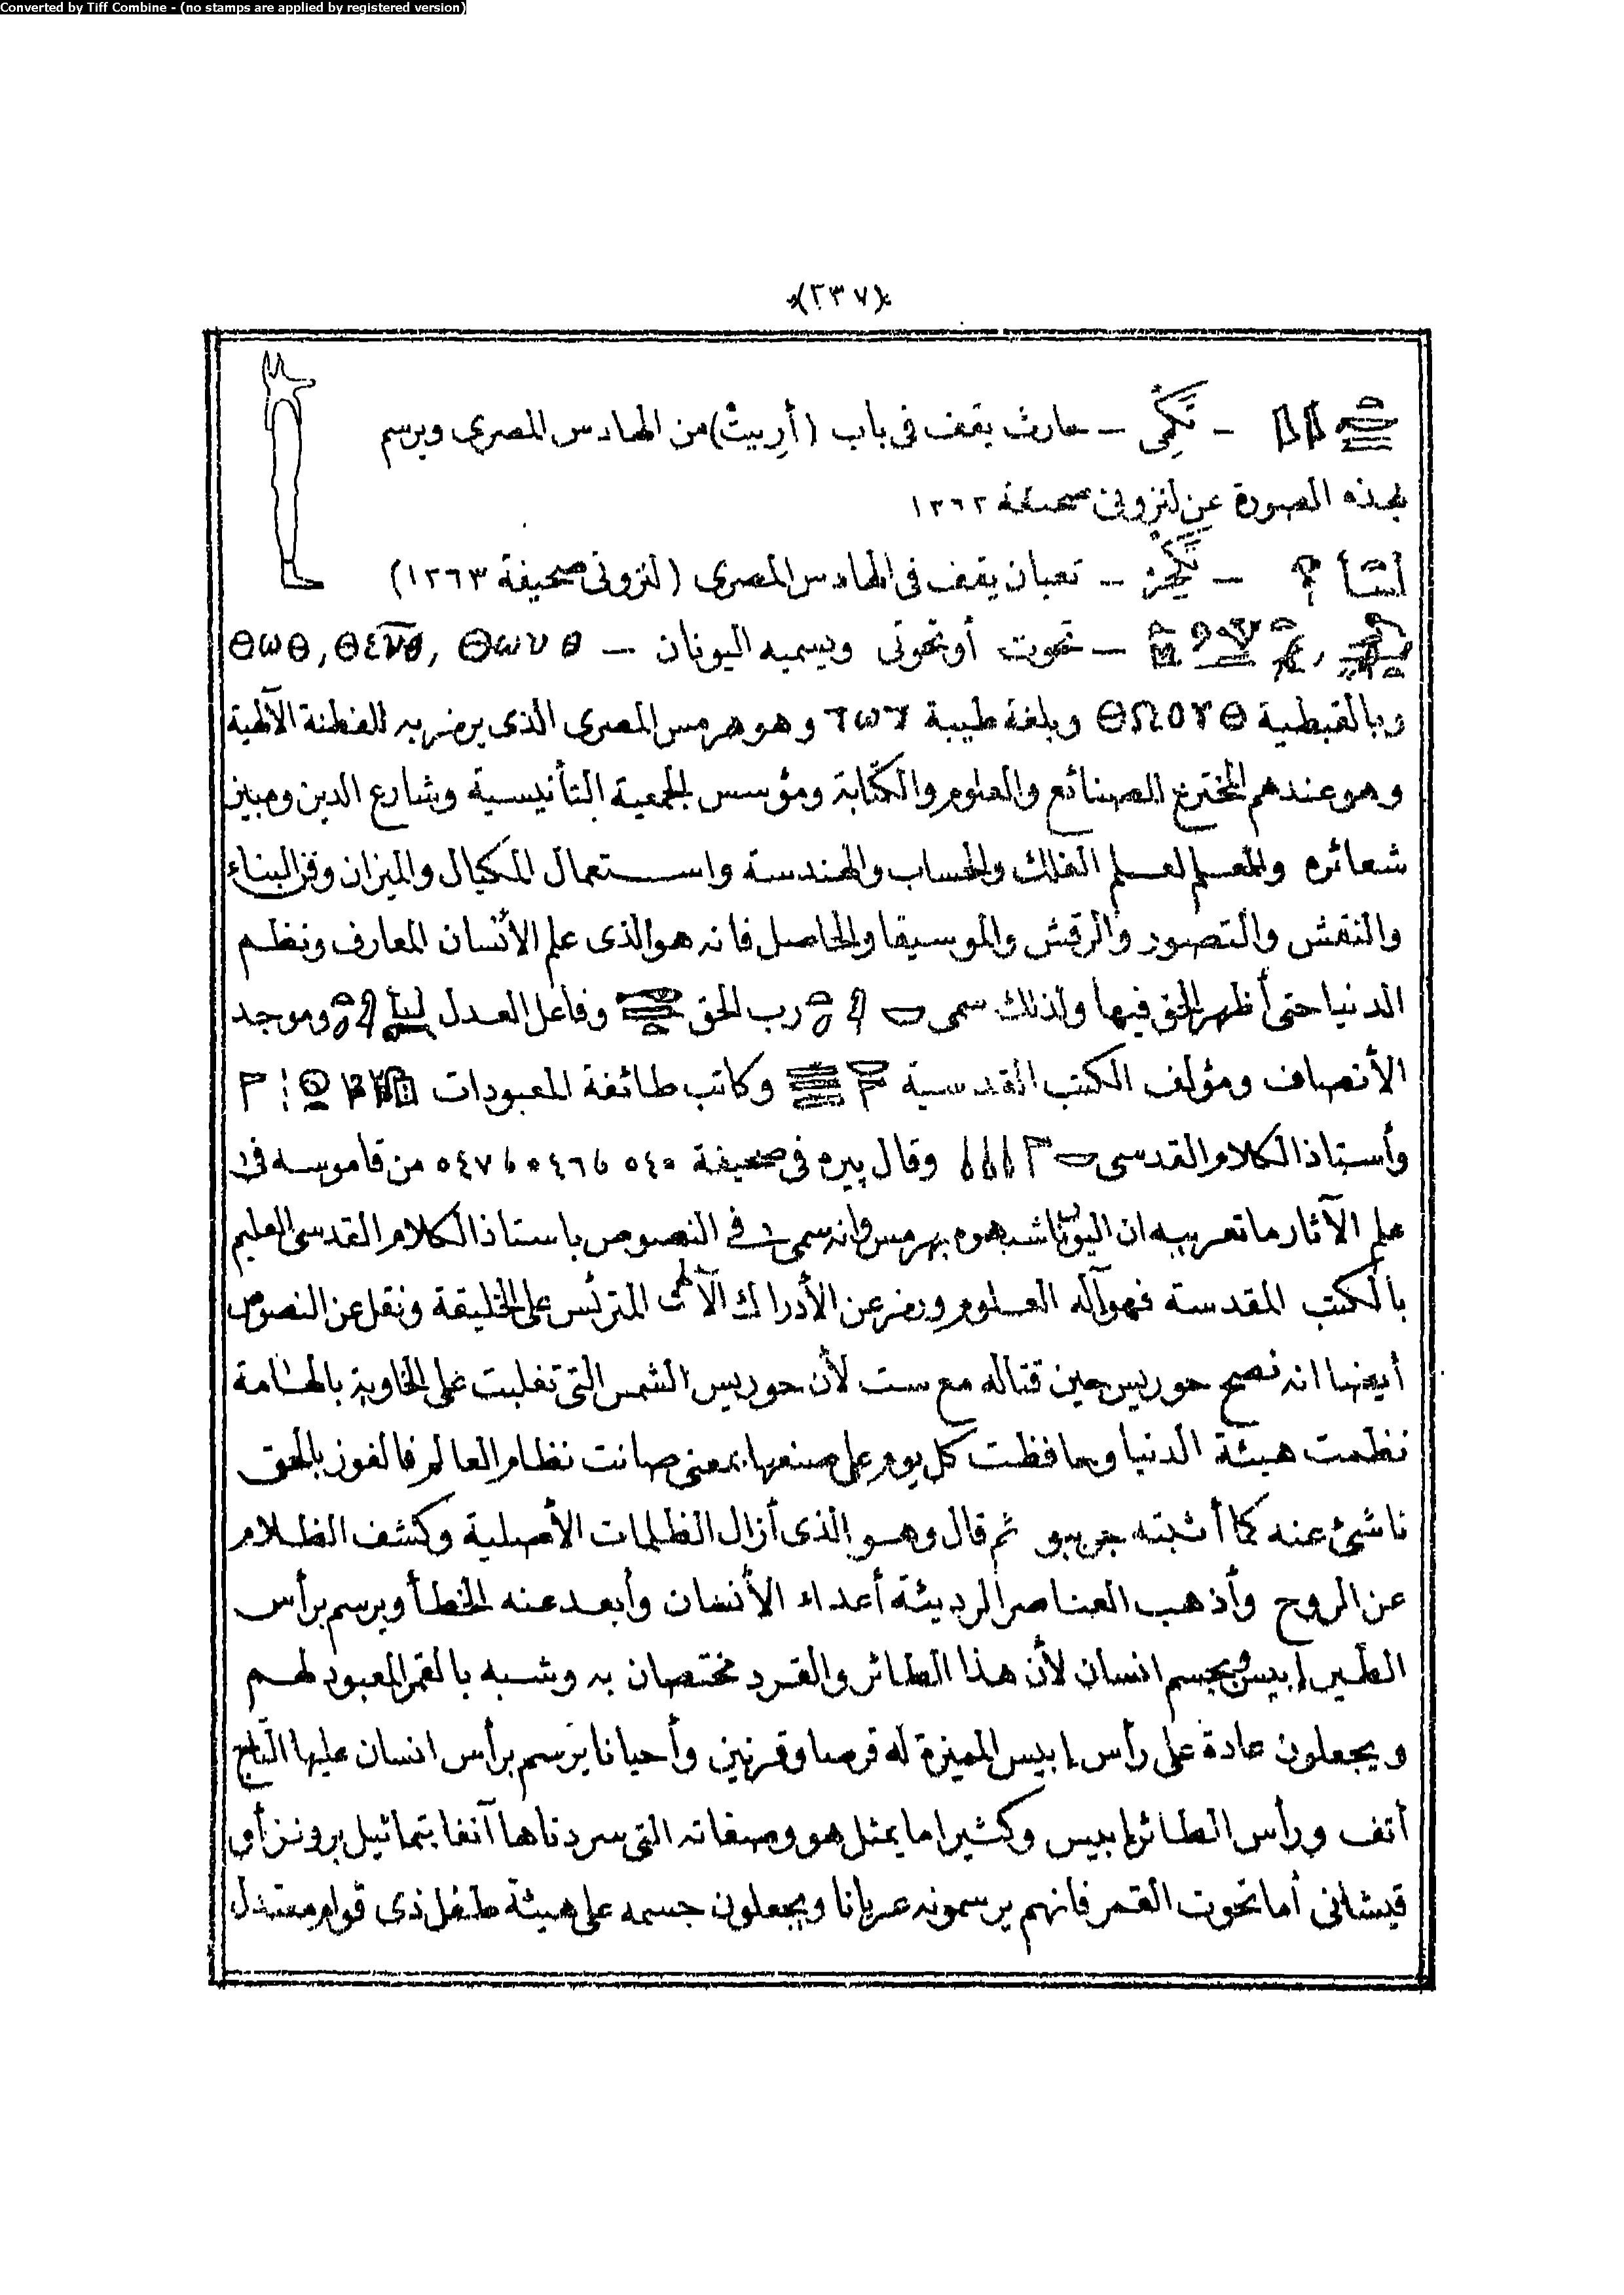 Converted by Tiff Combine - (no stamps are applied by registered version)
(٢٣٧)
– تَكْمِى – حارث يقف فى باب (أرِيِتْ) من الهادس المصرى ويرسم
بهذه الصورة عن لنزونى صحيفة ١٢٦٢
– – ثعبان يقف فى الهادس المصرى (لنزونى صحيفة ١٢٦٣)
– تحوت أو تحوتى ويسميه اليونان – Θωυθ, Θευθ, Θωθ
وبالقبطية ΘΩΟΥΘ وبلغة طيبة وهو هرمس المصرى الذى يرمز به للفطنة الآلهية
وهو عندهم المخترع للصنائع والعلوم والكتابة ومؤسس الجمعية التأنيسية وشارع الدين ومبين
شعائره والمعلم لعلم الفلك والحساب والهندسة واستعمال المكيال والميزان وفن البناء
والنقش والتصوير والرقش والموسيقا والحاصل فانه هو الذى علم الأنسان المعارف ونظم
الدنيا حتى أظهر الحق فيها ولذلك سمى رب الحق وفاعل العدل وموجد
الأنصاف ومؤلف الكتب المقدسية وكاتب طائفة المعبودات
وأستاذ الكلام القدسى وقال پيره فى صحيفة ٥٤٥ و ٥٤٦ و ٥٤٧ من قاموسه فى
علم الآثار ما تعريبه ان اليونان شبهوه بهرمس وانه سمى فى النصوص باستاذ الكلام القدسى العليم
بالكتب المقدسة فهو آله العلوم ورمز عن الأدراك الآلهى المترئس على الخليقة ونقل عن النصوص
أيضا انه نصح حوريس حين قتاله مع ست لأن حوريس الشمس التى تغلبت على الخاوية بالهامة
نظمت هيئة الدنيا وحافظت كل يوم على صنعها بمعنى صانت نظام العالم فالفوز بالحق
ناشئ عنه كما أثبته جريبو ثم قال وهو الذى أزال الظلمات الأصلية وكشف الظلام
عن الروح وأذهب العناصر الرديئة أعداء الأنسان وأبعد عنه الخطأ ويرسم برأس
الطير إبيس وبجسم انسان لأن هذا الطائر والقرد مختصان به وشبه بالقمر المعبود لهم
ويجعلون عادة على رأس إبيس المميزة له قرصا وقرنين وأحيانا يرسم برأس انسان عليها التاج
أتف ورأس الطائر إبيس وكثيرا ما يمثل هو وصفاته التى سردناها آنفا بتماثيل برونز أو
قيشانى أما تحوت القمر فانهم يرسمونه عريانا ويجعلون جسمه على هيئة طفل ذى قوام معتدل